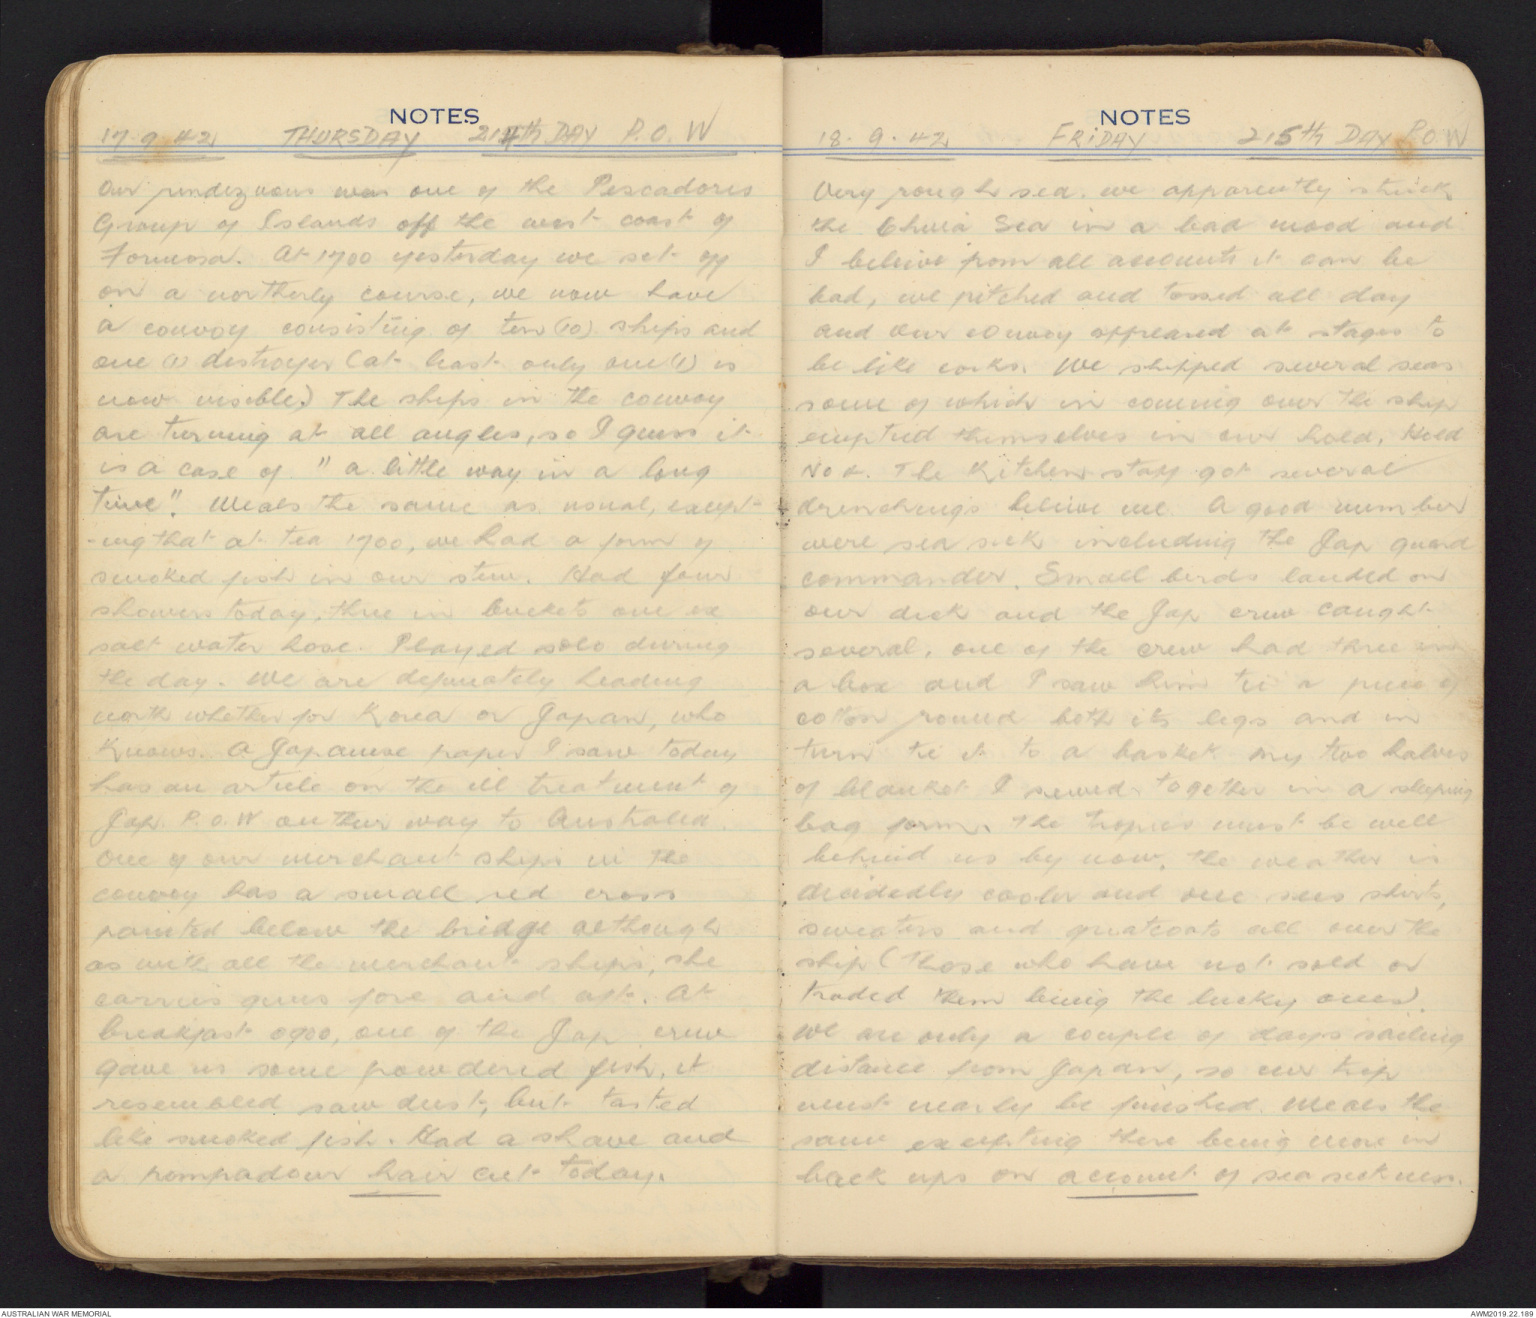 NOTES
17. 9. 42 THURSDAY 214th DAY P.O.W
Our rendezvous was one of the Pescadores
Group of Islands off the west coast of
Formosa. At 1700 yesterday we set off
on a northerly course, we now have
a convoy consisting of ten (10) ships and
one (1) destroyer (at least only one (1) is
now visible.) The ships in the convoy
are turning at all angles, so I guess it
is a case of "a little way in a long
time". Meals the same as usual, except-
-ing that at tea 1700, we had a form of
smoked fish in our stew. Had four
showers today, three in buckets one ex
salt water hose. Played solo during
the day. We are definately heading
north whether for Korea or Japan, who
knows. A Japanese paper I saw today
has an article on the ill treatment of
Jap. P.O.W on their way to Australia.
One of our merchant ships in the
convoy has a small red cross
painted below the bridge although
as with all the merchant ships, she
carries guns fore and aft. At
breakfast 0900, one of the Jap crew
gave us some powdered fish, it
resembled saw dust, but tasted
like smoked fish. Had a shave and
a pompadour hair cut today.
NOTES
18. 9. 42 FRIDAY 215th DAY P.O.W
Very rough sea. we apparently struck
the China Sea in a bad mood and
I beleive from all accounts it can be
bad, we pitched and tossed all day
and our convoy appeared at stages to
be like corks. We shipped several seas
some of which in coming over the ship
emptied themselves in our hold, Hold
No 2. The Kitchen staff got several
drenchings beleive me. A good number
were sea sick including the Jap guard
commander. Small birds landed on
our deck and the Jap crew caught
several, one of the crew had three in
a box and I saw him tie a piece of
cotton round both its legs and in
turn tie it to a basket. My two halves
of blanket I sewed together in a sleeping
bag form. The tropics must be well
behind us by now, the weather is
decidedly cooler and one sees shirts,
sweaters and greatcoats all over the
ship (those who have not sold or
traded them being the lucky ones).
We are only a couple of days sailing
distance from Japan, so our trip
must nearly be finished. Meals the
same excepting there being more in
back ups on account of sea sickness.
AUSTRALIAN WAR MEMORIAL
AWM2019.22.189